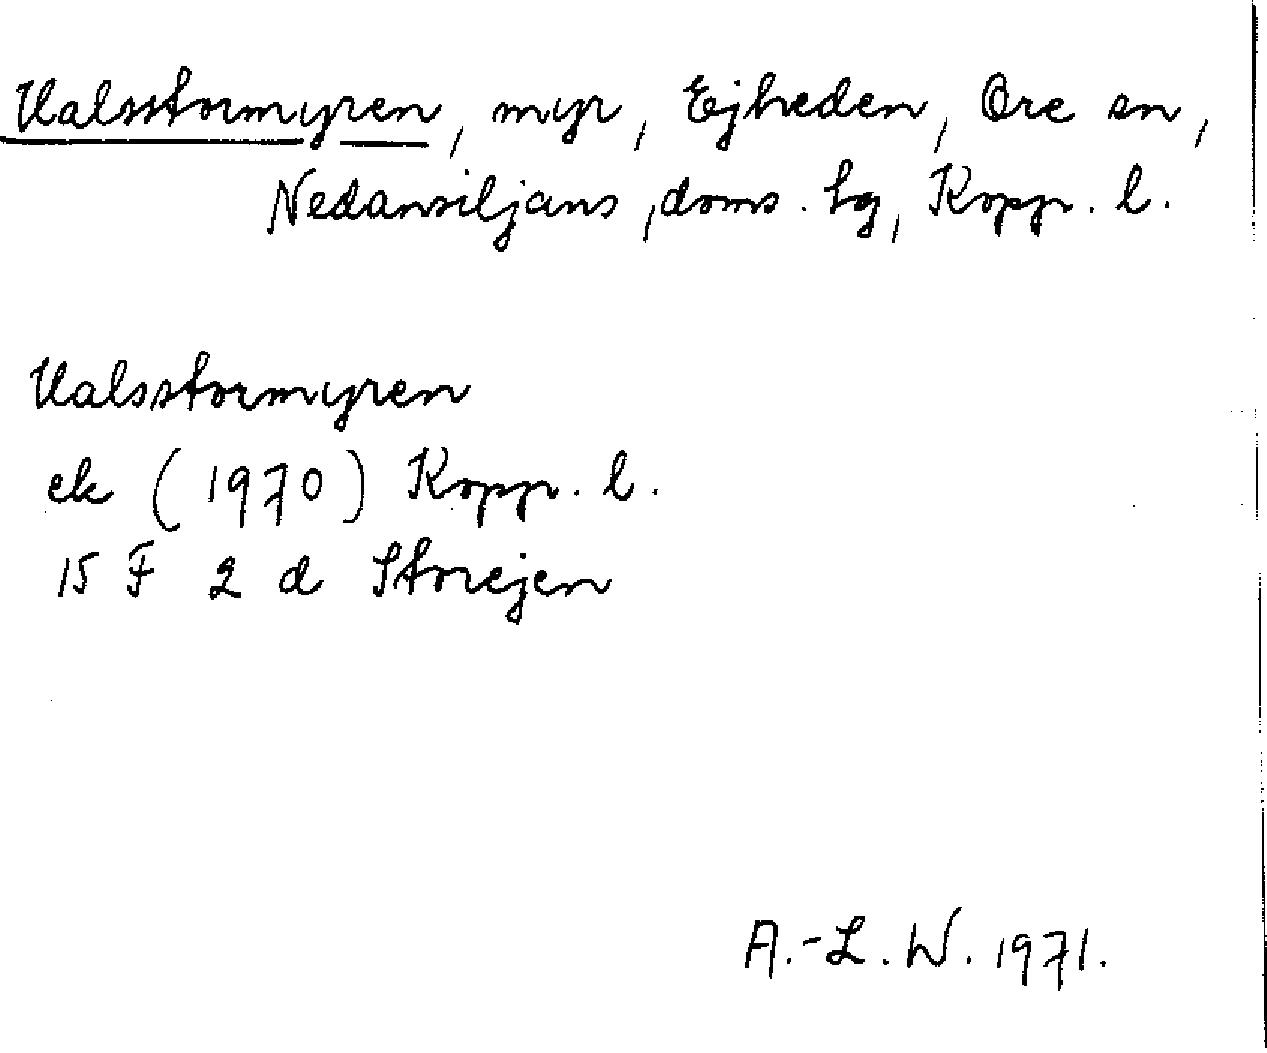 Valsstormyren, myr, Ejheden, Ore sn,
Nedansiljans doms. tg, Kopp. l.
Valsstormyren
ek (1970) Kopp. l.
15 F 2 d Storejen
A.-L. W. 1971.